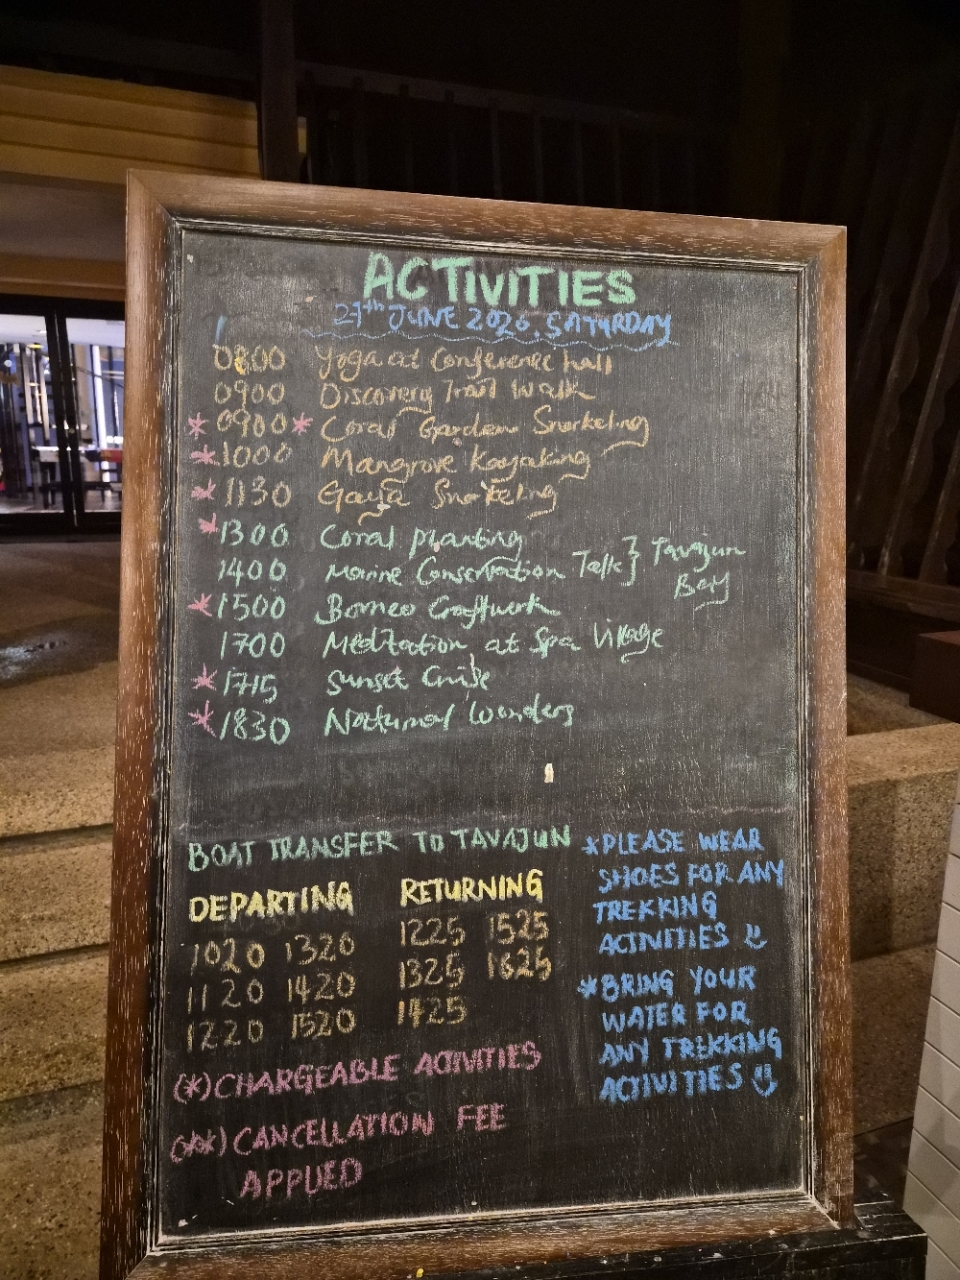 ACTIVITIES
27th JUNE 2026, SATURDAY
0800 Yoga at Conference hall
0900 Discovery Trail Walk
*0900* Coral Garden Snorkeling
*1000 Mangrove Kayaking
*1130 Gaya Snorkeling
*1300 Coral planting
1400 Marine Conservation Talk } Tavajun Bay
*1500 Borneo Craftwork
1700 Meditation at Spa Village
*1715 Sunset Cruise
*1830 Natural Wonders
BOAT TRANSFER TO TAVAJUN
DEPARTING RETURNING
1020 1320 1225 1525
1120 1420 1325 1625
1220 1520 1425
(*) CHARGEABLE ACTIVITIES
(**) CANCELLATION FEE
APPLIED
*PLEASE WEAR
SHOES FOR ANY
TREKKING
ACTIVITIES
*BRING YOUR
WATER FOR
ANY TREKKING
ACTIVITIES